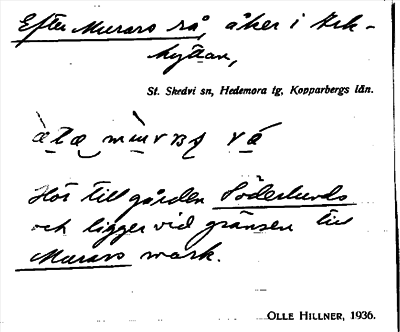 Efter Murars rå, åker i Ark-
hyttan,
St. Skedvi sn, Hedemora tg, Kopparbergs län.
Hör till gården Söderlunds
och ligger vid gränsen till
Murars mark.
OLLE HILLNER, 1936.